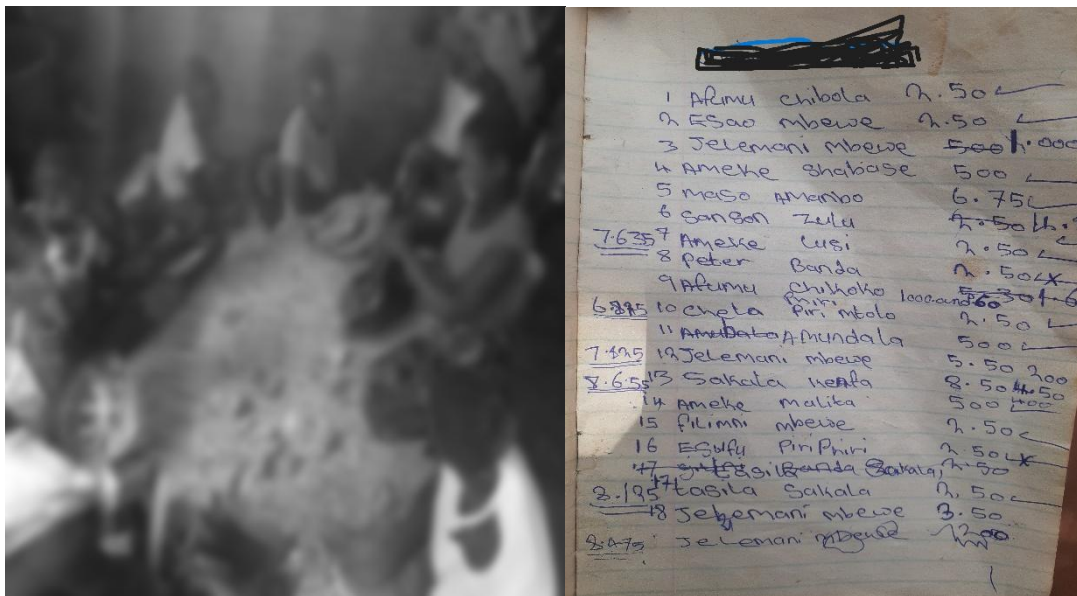 1 Afumu chibola 2.50
2 ESao mbewe 2.50
3 Jelemani mbewe 500 1.000
4 Ameke Shabase 500
5 maso Amambo 6.75
6 Sanson Zulu 2.50
7.635 7 Ameke Lusi 2.50
8 Peter Banda 2.50 x
9 Afumu chikoko
10 Cheta Piri mtolo 2.50
11 Amundala 500
7.425 12 Jelemani mbewe 5.50 200
8.6.55 13 Sakata 8.50
14 Ameke malika 500 400
15 filimni mbewe 2.50
16 ESufu Piri Phiri 2 50 x
17 Banda Sakala 2.50
8.125 17 Lasila Sakala 2.50
18 Jelemani mbewe 3.50
8.475 Jelemani mbewe